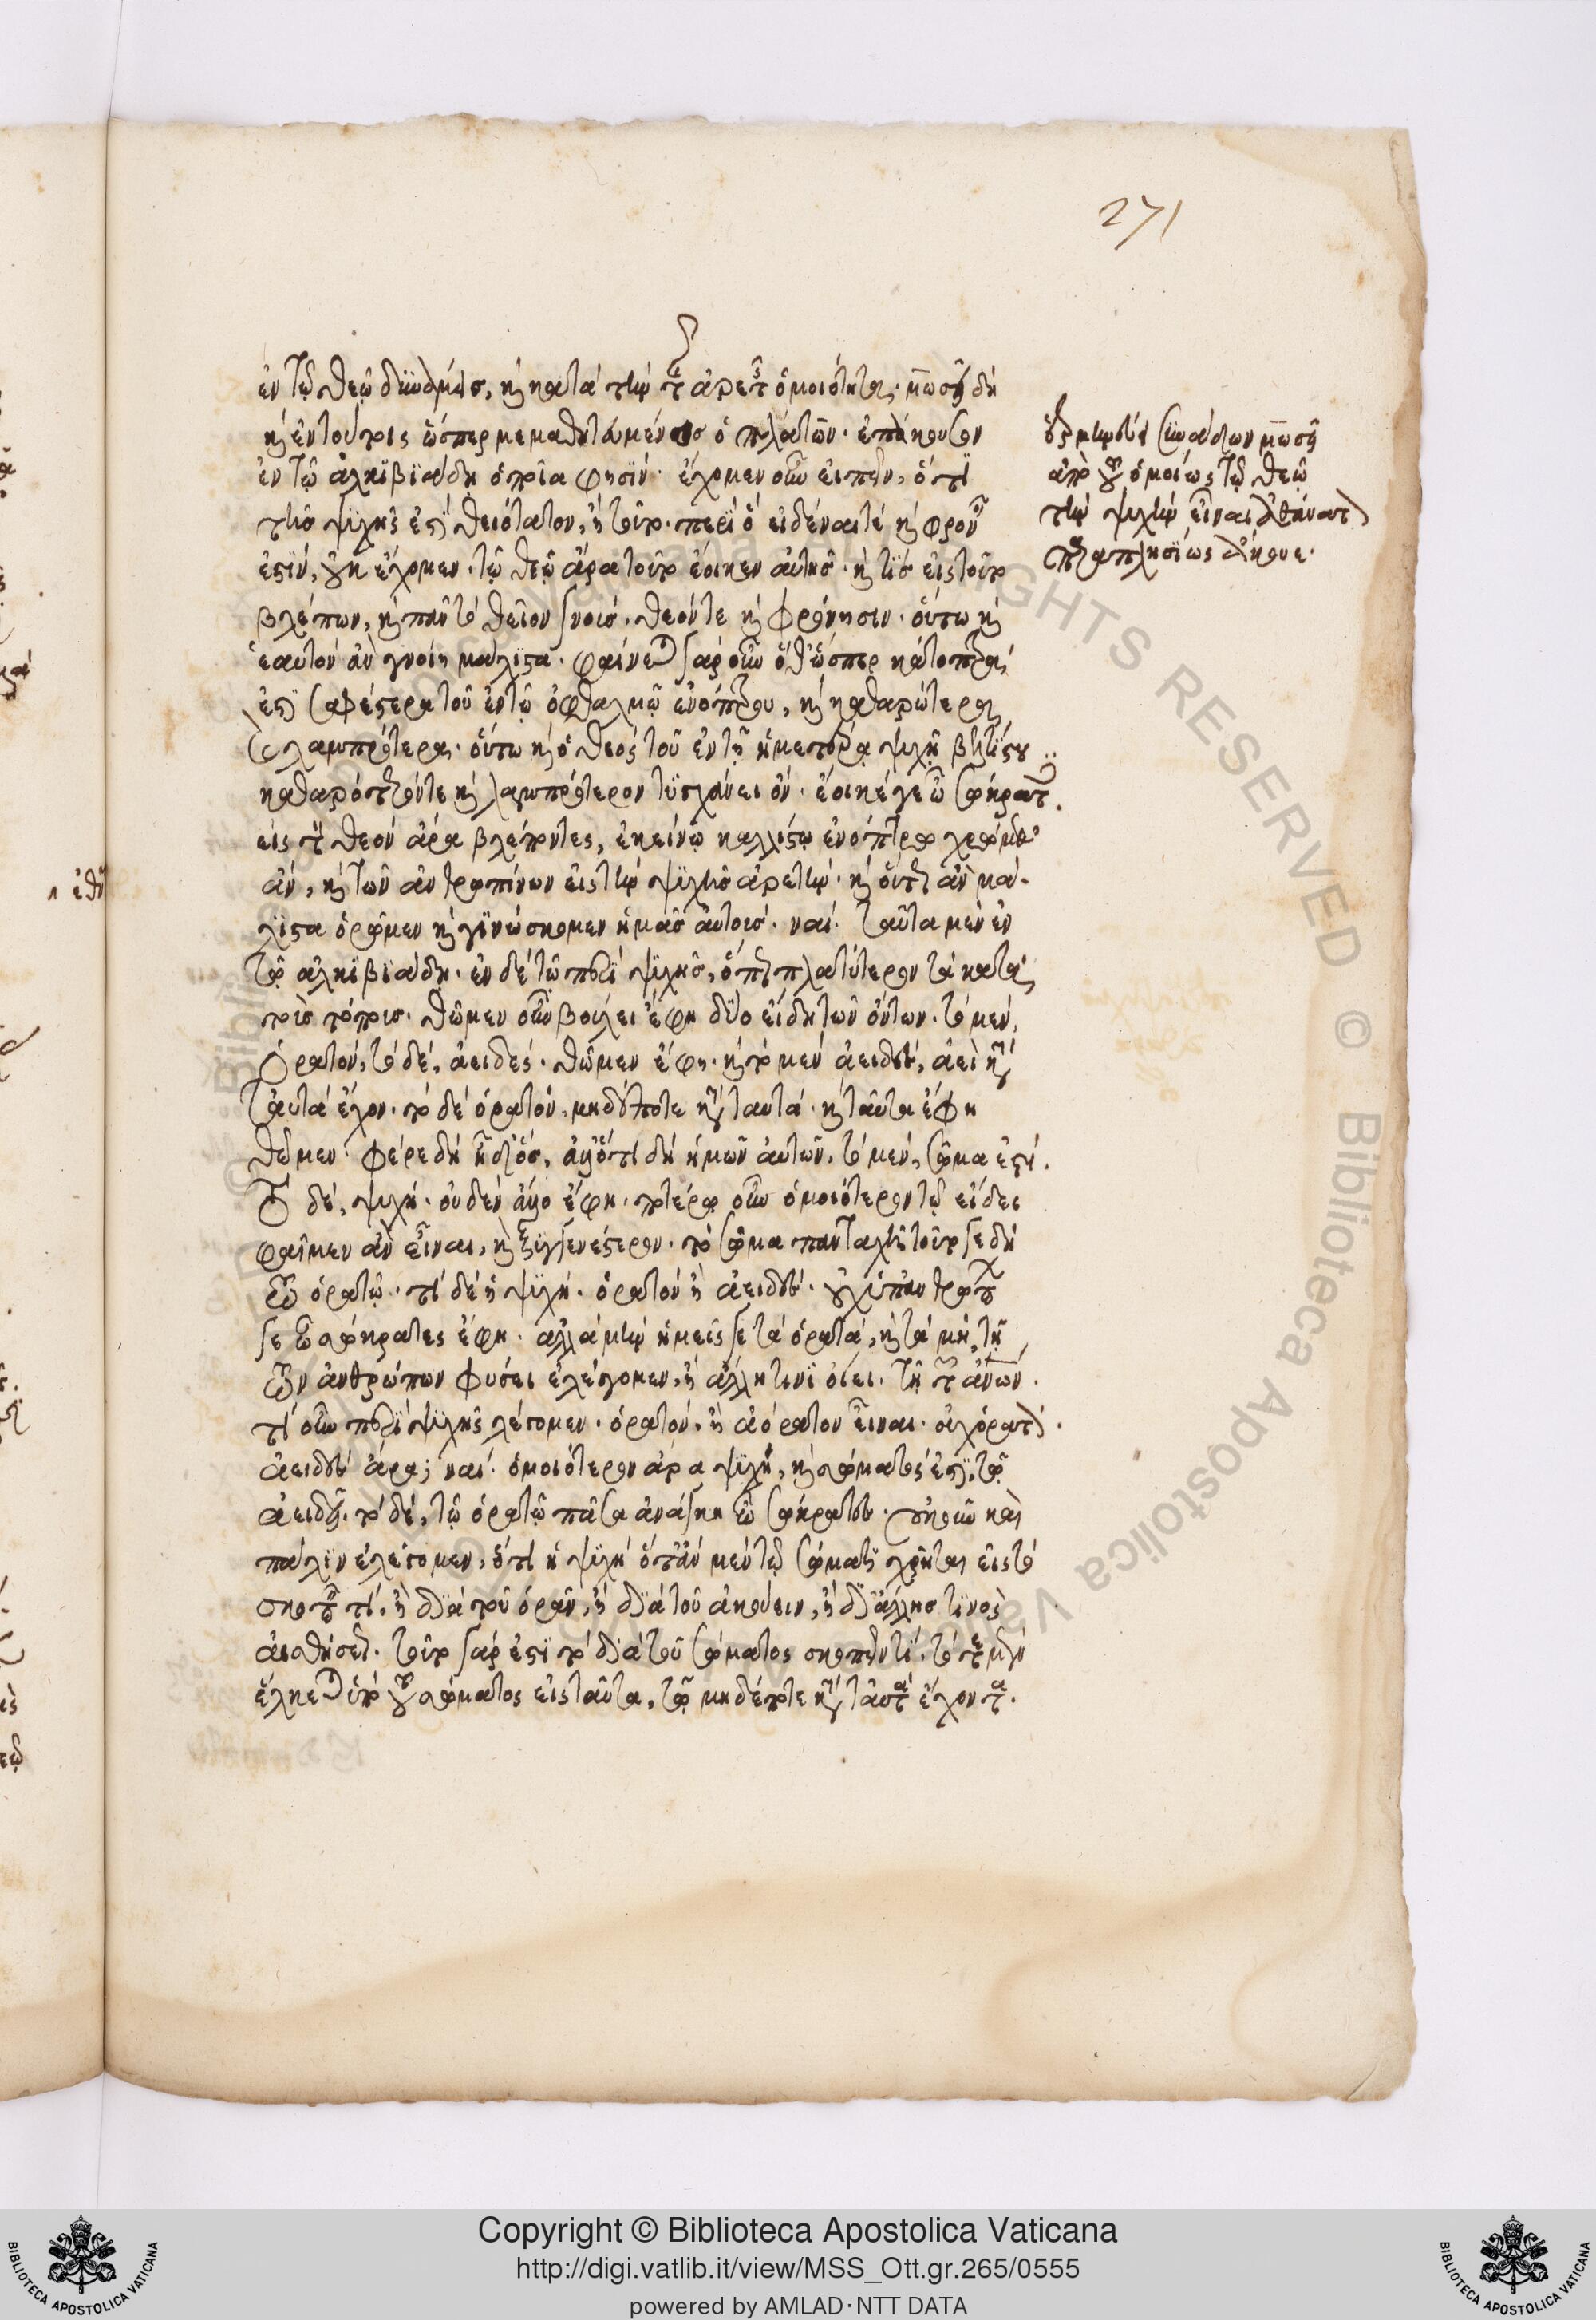 271
ἐν τῷ θεῷ δυνάμεις, καὶ κατὰ τὴν τῆς ἀρετῆς ὁμοιότητα. μωσῇ δὴ
καὶ ἐν τούτοις ὥσπερ μεμαθητευμένος ὁ πλάτων. ἐπάκουσον
ἐν τῷ ἀλκιβιάδῃ ὁποῖα φησίν. ἔχομεν οὖν εἰπεῖν, ὅτι
τῆς ψυχῆς ἐστὶ θειότατον, ἢ τοῦτο. περὶ ὃ εἰδέναι τὲ καὶ φρονεῖν
ἐστίν, οὐκ ἔχομεν. τῷ θεῷ ἄρα τοῦτο ἔοικεν αὐτῆς. καὶ τίς εἰς τοῦτο
βλέπων, καὶ πᾶν τὸ θεῖον γνούς. θεόν τε καὶ φρόνησιν. οὕτω καὶ
ἑαυτὸν ἂν γνοίη μάλιστα. φαίνεται γὰρ οὖν ὅθ' ὥσπερ κάτοπτρα
ἐστὶ σαφέστερα τοῦ ἐν τῷ ὀφθαλμῷ ἐνόπτρου, καὶ καθαρώτερα
καὶ λαμπρότερα. οὕτω καὶ ὁ θεὸς τοῦ ἐν τῇ ἡμετέρᾳ ψυχῇ βελτίστου
καθαρότερόν τε καὶ λαμπρότερον τυγχάνει ὄν. ἔοικέ γε ὦ σώκρατες.
εἰς τὸν θεὸν ἄρα βλέποντες, ἐκείνῳ καλλίστῳ ἐνόπτρῳ χρώμεθα
ἄν, καὶ τῶν ἀνθρωπίνων εἰς τὴν ψυχῆς ἀρετήν. καὶ οὕτως ἂν μά-
λιστα ὁρῶμεν καὶ γινώσκομεν ἡμᾶς αὐτούς. ναί. ταῦτα μὲν ἐν
τῷ ἀλκιβιάδῃ. ἐν δὲ τῷ περὶ ψυχῆς, ὅπως πλατύτερον τὰ κατὰ
τοὺς τόπους. θῶμεν οὖν βούλει ἔφη δύο εἴδη τῶν ὄντων. τὸ μὲν,
ὁρατόν, τὸ δὲ, ἀειδές. θῶμεν ἔφη. καὶ τὸ μὲν ἀειδὲς, ἀεὶ κατὰ
ταυτὰ ἔχον. τὸ δὲ ὁρατόν, μηδέποτε κατὰ ταυτά. καὶ ταῦτα ἔφη
θῶμεν. φέρε δὴ ἦ δ' ὅς, ἄλλό τι δὴ ἡμῶν αὐτῶν, τὸ μὲν, σῶμα ἐστί.
τὸ δὲ, ψυχή. οὐδὲν ἄλλο ἔφη. ποτέρῳ οὖν ὁμοιότερον τῷ εἴδει
φαῖμεν ἂν εἶναι, καὶ ξυγγενέστερον. τὸ σῶμα παντὶ δῆλον τοῦτό γε δὴ
τῷ ὁρατῷ. τί δὲ ἡ ψυχή. ὁρατὸν ἢ ἀειδές. οὐχ ὑπ' ἀνθρώπου
γε ὦ σώκρατες ἔφη. ἀλλὰ μὴν ἡμεῖς γε τὰ ὁρατὰ, καὶ τὰ μὴ, τῇ
τῶν ἀνθρώπων φύσει ἐλέγομεν, ἢ ἄλλῃ τινὶ οἴει. τῇ τῶν ἀνθρώπων.
τί οὖν περὶ ψυχῆς λέγομεν. ὁρατόν, ἢ ἀόρατον εἶναι. οὐχ ὁρατόν.
ἀειδὲς ἄρα; ναί. ὁμοιότερον ἄρα ψυχὴ, καὶ σώματός ἐστι, τῷ
ἀειδεῖ. τὸ δὲ, τῷ ὁρατῷ πᾶσα ἀνάγκη ὦ σώκρατες. οὐκοῦν καὶ
πάλιν ἐλέγομεν, ὅτι ἡ ψυχὴ ὅταν μὲν τῷ σώματι χρῆται εἰς τὸ
σκοπεῖν τί, ἢ διὰ τοῦ ὁρᾶν, ἢ διὰ τοῦ ἀκούειν, ἢ δι' ἄλλης τινὸς
αἰσθήσεως. τοῦτο γάρ ἐστι τὸ διὰ τοῦ σώματος σκοπεῖν τί. τότε μὲν
ἕλκεται ὑπὸ τοῦ σώματος εἰς ταῦτα, τῷ μηδέποτε κατὰ ταυτὰ ἔχοντα.
ὅρα μὴν δὲ συνᾴδων μωσῇ
ἀπὸ τοῦ ὁμοίως τῷ θεῷ
τὴν ψυχὴν εἶναι ἀθάνατον
παραπλησίως ἄκουε.
Copyright © Biblioteca Apostolica Vaticana
http://digi.vatlib.it/view/MSS_Ott.gr.265/0555
powered by AMLAD·NTT DATA